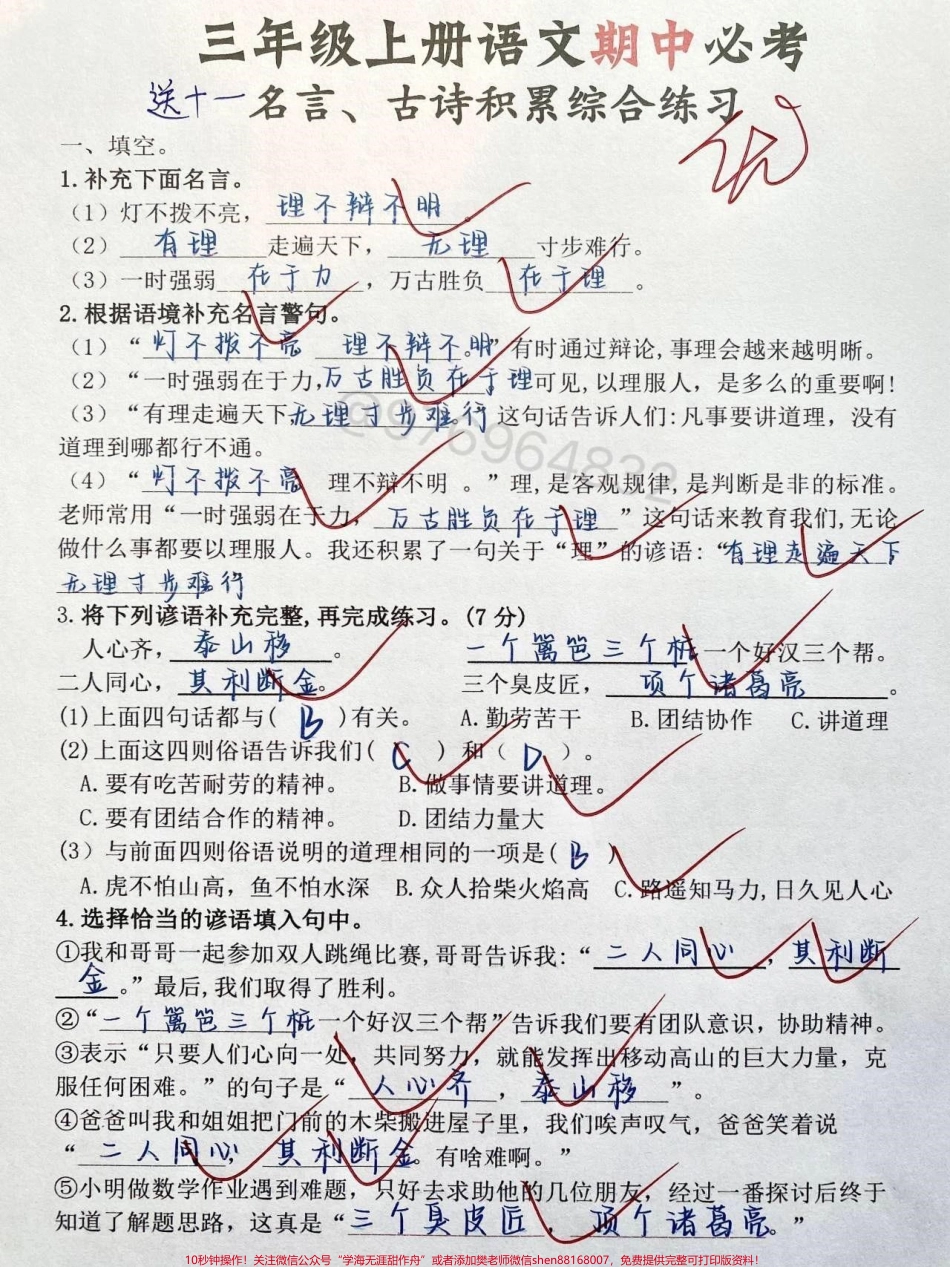 三年级上册语文期中必考
送十一名言、古诗积累综合练习 优
一、填空。
1.补充下面名言。
（1）灯不拨不亮，理不辩不明。
（2）有理走遍天下，无理寸步难行。
（3）一时强弱在于力，万古胜负在于理。
2.根据语境补充名言警句。
（1）“灯不拨不亮 理不辩不明。”有时通过辩论,事理会越来越明晰。
（2）“一时强弱在于力,万古胜负在于理可见,以理服人，是多么的重要啊!
（3）“有理走遍天下,无理寸步难行。这句话告诉人们:凡事要讲道理，没有
道理到哪都行不通。
（4）“灯不拨不亮 理不辩不明 。”理,是客观规律,是判断是非的标准。
老师常用“一时强弱在于力，万古胜负在于理”这句话来教育我们,无论
做什么事都要以理服人。我还积累了一句关于“理”的谚语：“有理走遍天下
无理寸步难行
3.将下列谚语补充完整,再完成练习。(7分)
人心齐，泰山移。 一个篱笆三个桩一个好汉三个帮。
二人同心，其利断金。 三个臭皮匠，顶个诸葛亮。
(1)上面四句话都与( B )有关。 A.勤劳苦干 B.团结协作 C.讲道理
(2)上面这四则俗语告诉我们( C ) 和（ D ）。
A.要有吃苦耐劳的精神。 B.做事情要讲道理。
C.要有团结合作的精神。 D.团结力量大
(3）与前面四则俗语说明的道理相同的一项是( B )
A.虎不怕山高，鱼不怕水深 B.众人拾柴火焰高 C.路遥知马力,日久见人心
4.选择恰当的谚语填入句中。
①我和哥哥一起参加双人跳绳比赛,哥哥告诉我:“二人同心，其利断
金。”最后,我们取得了胜利。
②“一个篱笆三个桩一个好汉三个帮”告诉我们要有团队意识，协助精神。
③表示“只要人们心向一处，共同努力，就能发挥出移动高山的巨大力量，克
服任何困难。”的句子是“人心齐，泰山移”。
④爸爸叫我和姐姐把门前的木柴搬进屋子里，我们唉声叹气，爸爸笑着说
“二人同心，其利断金。有啥难啊。”
⑤小明做数学作业遇到难题，只好去求助他的几位朋友，经过一番探讨后终于
知道了解题思路，这真是“三个臭皮匠，顶个诸葛亮。”
@976964832
10秒钟操作！关注微信公众号“学海无涯甜作舟”或者添加樊老师微信shen88168007，免费提供完整可打印版资料！